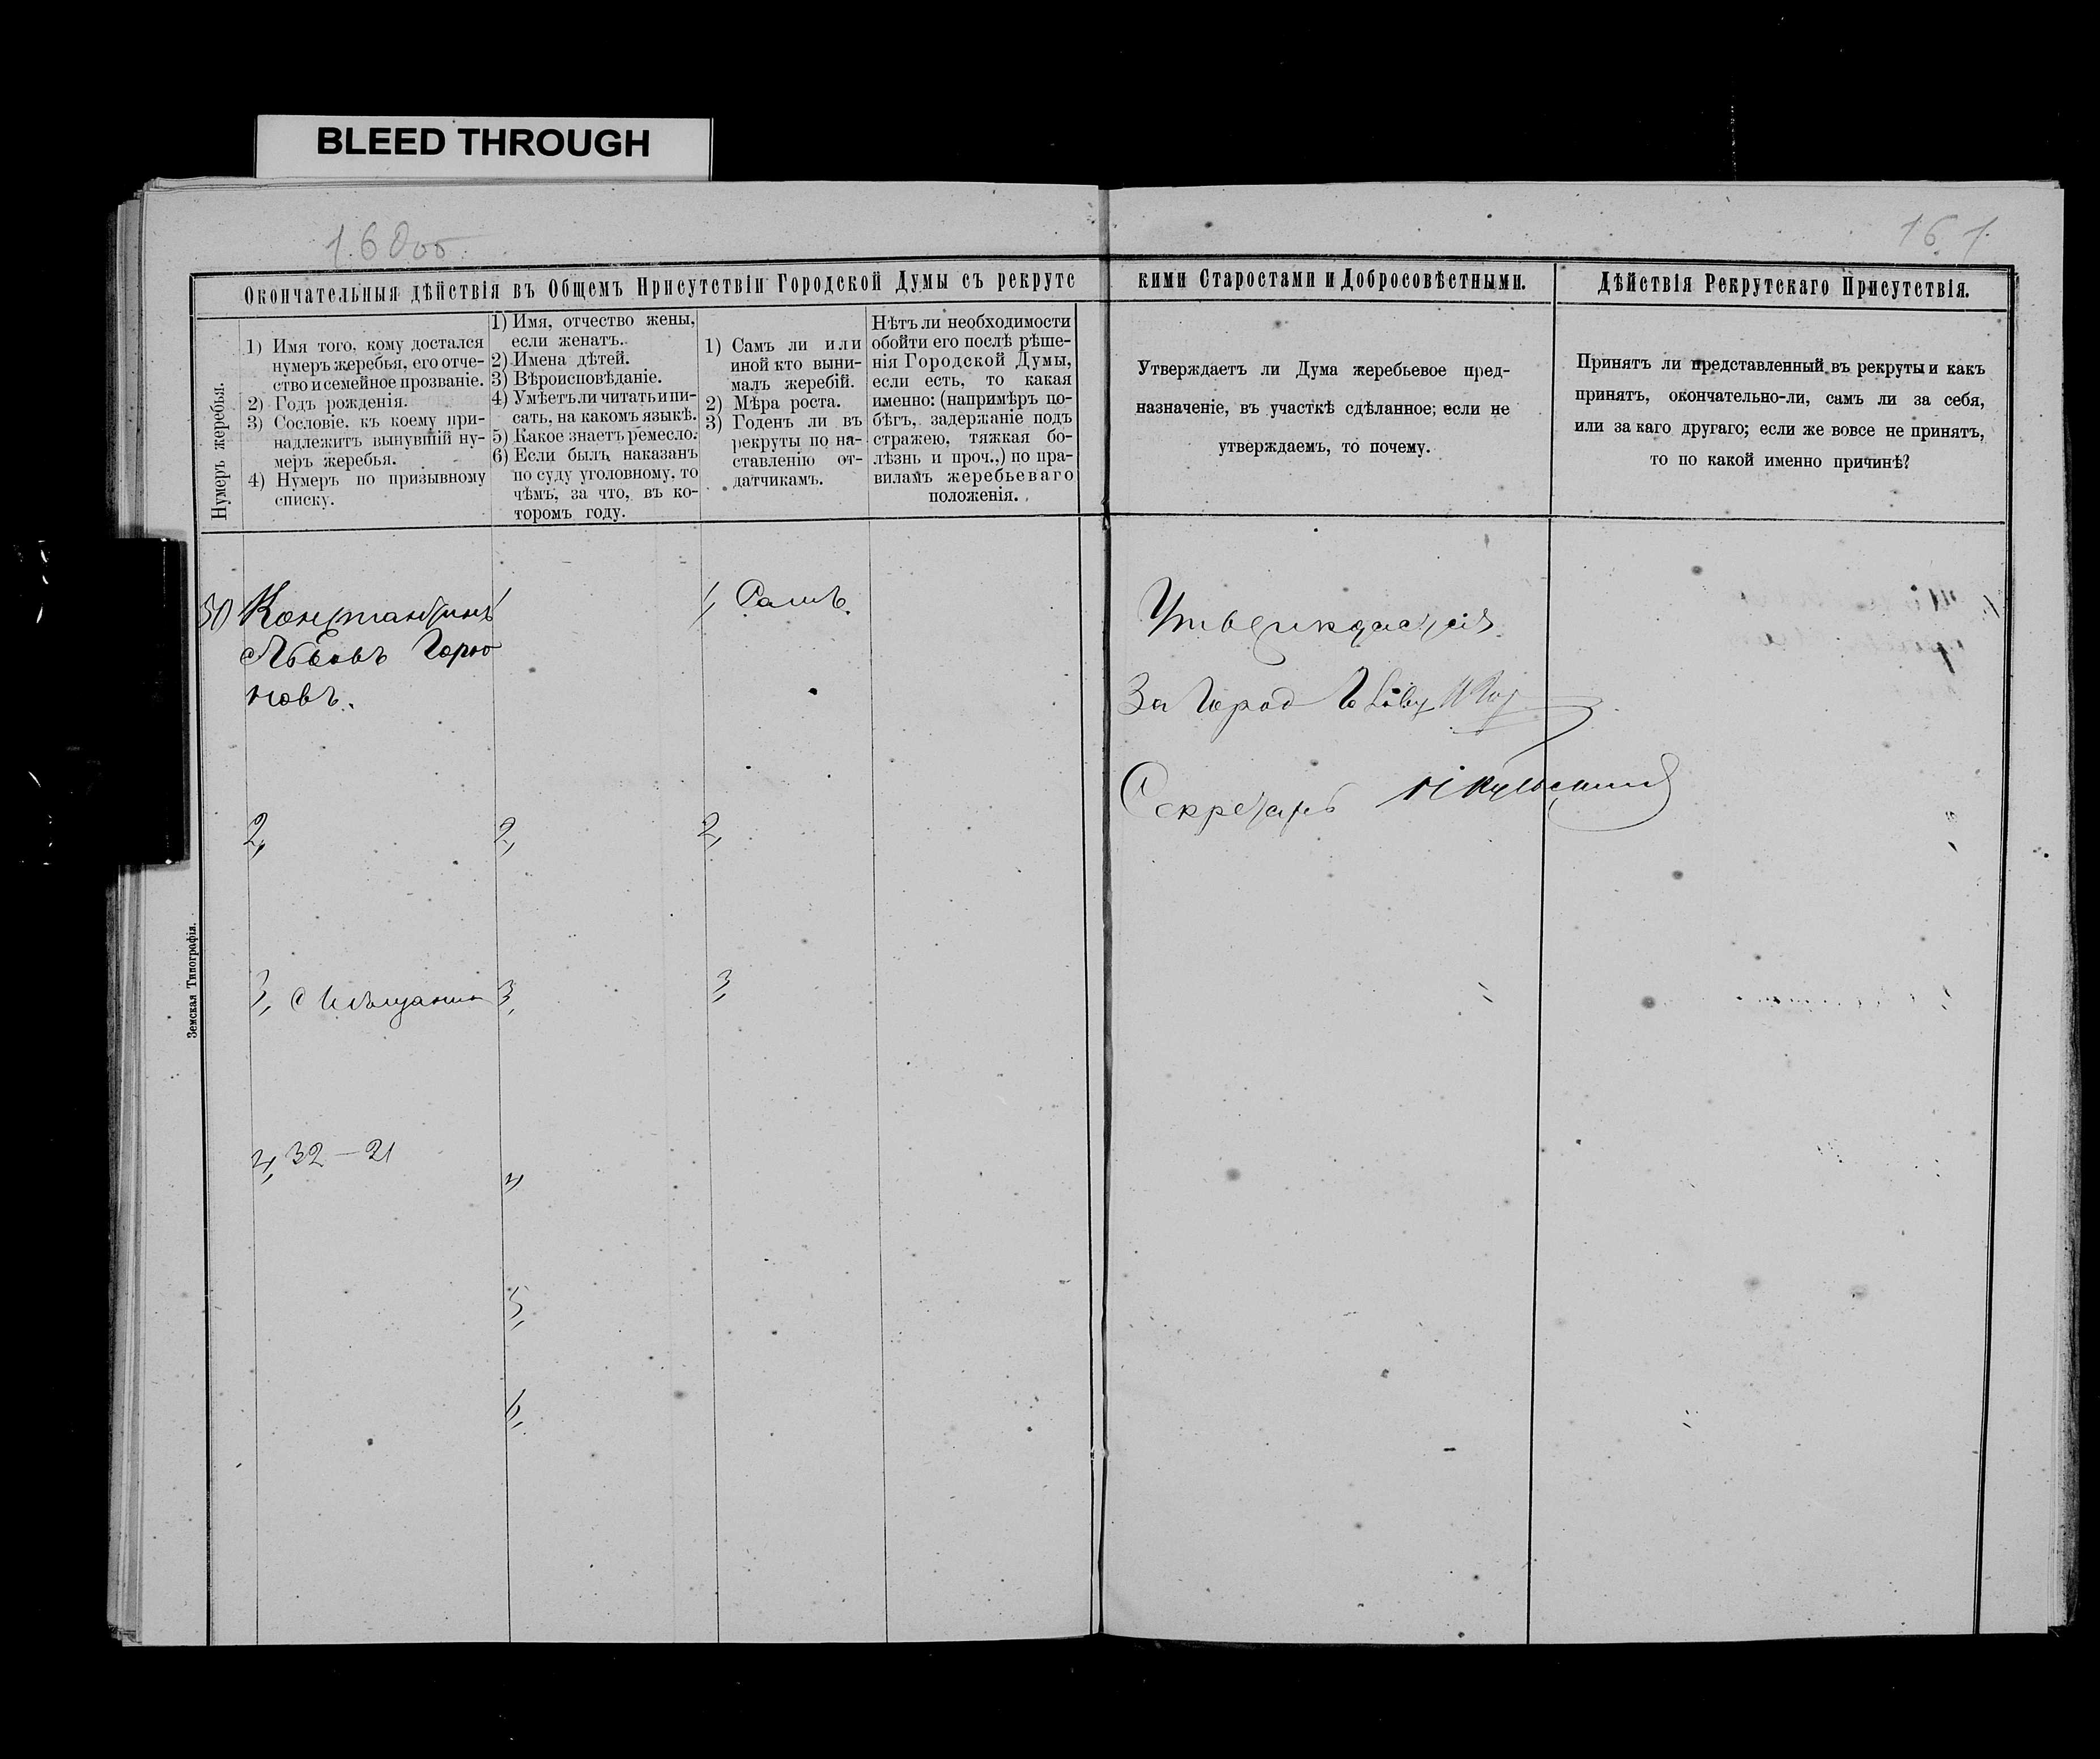 BLEED THROUGH
160об
161
Окончательныя дѣйствія въ Общемъ Присутствіи Городской Думы съ рекрутс
кими Старостами и Добросовѣстными.
Дѣйствія Рекрутскаго Присутствія.
Нумеръ жеребья.
1) Имя того, кому достался
нумеръ жеребья, его отче-
ство и семейное прозваніе.
2) Годъ рожденія.
3) Сословіе, къ коему при-
надлежитъ вынувшій ну-
меръ жеребья.
4) Нумеръ по призывному
списку.
1) Имя, отчество жены,
если женатъ.
2) Имена дѣтей.
3) Вѣроисповѣданіе.
4) Умѣетъ ли читать и пи-
сать, на какомъ языкѣ.
5) Какое знаетъ ремесло.
6) Если былъ наказанъ
по суду уголовному, то
чѣмъ, за что, въ ко-
торомъ году.
1) Самъ ли или
иной кто выни-
малъ жеребій.
2) Мѣра роста.
3) Годенъ ли въ
рекруты по на-
ставленію от-
датчикамъ.
Нѣтъ ли необходимости
обойти его послѣ рѣше-
нія Городской Думы,
если есть, то какая
именно: (напримѣръ по-
бѣгъ, задержаніе подъ
стражею, тяжкая бо-
лѣзнь и проч.,) по пра-
виламъ жеребьеваго
положенія.
Утверждаетъ ли Дума жеребьевое пред-
назначеніе, въ участкѣ сдѣланное; если не
утверждаемъ, то почему.
Принятъ ли представленный въ рекруты и какъ
принятъ, окончательно-ли, самъ ли за себя,
или за каго другаго; если же вовсе не принятъ,
то по какой именно причинѣ?
50
Константинъ
Львовъ Горю
новъ.
2,
3, Мѣщанинъ
4, 32-21
1
2,
3,
4,
5,
6,
1, Самъ.
2,
3,
Утверждается
За Город
Секретарь
Земская Типографія.